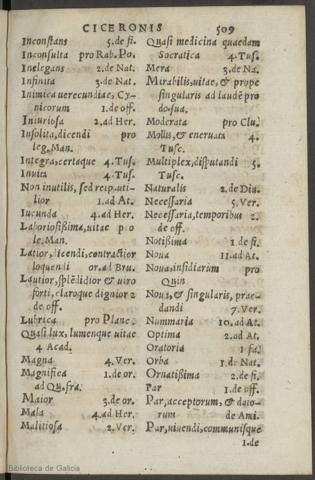 CICERONIS 509
Inconstans 5.de fi.
Inconsulta pro Rab. Po.
Inelegans 2.de Nat.
Infinita 3.de Nat.
Inimica uerecundiae, Cy-
nicorum 1.de off.
Iniuriosa 2.ad Her.
Insolita, dicendi pro
leg. Man.
Integra, certaque 4. Tus.
Inuita 4. Tus.
Non inutilis, sed reip. uti-
lior 1.ad At.
Iucunda 4.ad Her.
Laboriosißima, uitae p o
le. Man.
Latior, dicendi, contractior
loquendi or.ad Bru.
Lautior, splēdidior & uiro
forti, claroque dignior 2
de off.
Lubrica pro Planc.
Quasi lux, lumenque uitae
4 Acad.
Magna 4. Ver.
Magnifica 1.de or.
ad Qu. fra.
Maior 3.de or.
Mala 4.ad Her.
Malitiosa 2. Ver.
Quasi medicina quaedam
Socratica 4. Tus.
Mera 3.de Na.
Mirabilis, uitae, & prope
singularis ad laudē pro
do.sua.
Moderata pro Clu.
Mollis, & eneruata 4.
Tusc.
Multiplex, disputandi 5.
Tusc.
Naturalis 2.de Diu.
Necessaria 5. Ver.
Necessaria, temporibus 2.
de off.
Notißima 1.de fi.
Noua 11.ad At.
Noua, insidiarum pro
Quin
Noua, & singularis, prae-
dandi 7. Ver.
Nummaria 10.ad At.
Optima 2.ad At.
Oratoria 1 fa.
Orba 1.de Nat.
Ornatißima 2.de fi.
Par 1.de off.
Par, acceptorum, & dato-
rum de Ami.
Par, uiuendi, communisque
1.de
Biblioteca de Galicia